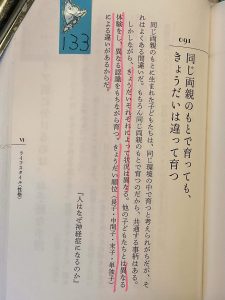 133
091
同じ両親のもとで育っても、
きょうだいは違って育つ
同じ両親のもとに生まれた子どもたちは、同じ環境の中で育つと考えられがちだが、そ
れはよくある間違いだ。もちろん同じ両親のもとで育つのだから、共通する事柄はある。
しかしながら、きょうだいそれぞれによって状況は異なる。他の子どもたちとは異なる
体験をし、異なる認識をもちながら育つ。きょうだい順位（長子・中間子・末子・単独子）
による違いがあるからだ。
『人はなぜ神経症になるのか』
VI
ライフスタイル（性格）